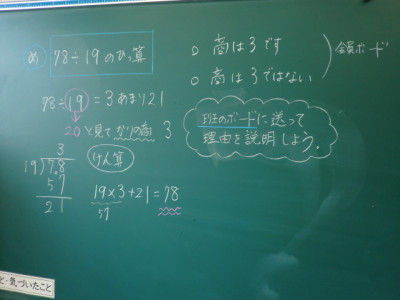 め 78÷19のひっ算
78÷19=3あまり21
20と見てかりの商 3
3
19)78
57
21
けん算
19×3+21=78
57
○ 商は3です
○ 商は3ではない
全員ボード
班のボードに送って
理由を説明しよう。
と・気づいたこと